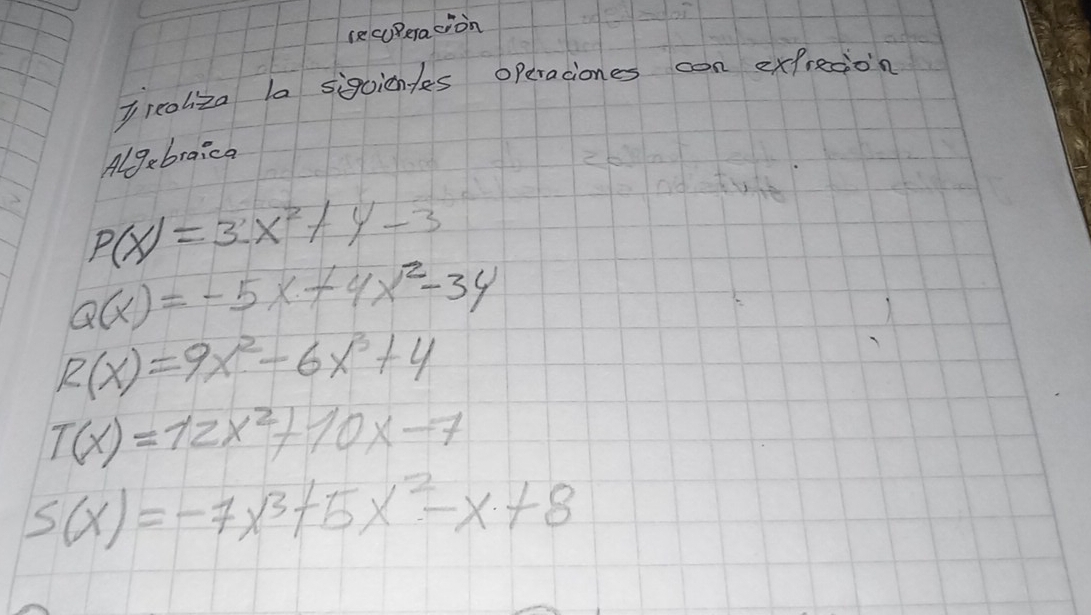 recuperación
1) realiza la siguientes operaciones con expreción
Algebraica
P(X) = 3x² + y - 3
Q(X) = -5x + 4x² - 3y
R(X) = 9x² - 6x³ + y
T(X) = 12x² + 10x - 7
S(X) = -7x³ + 5x² - x + 8